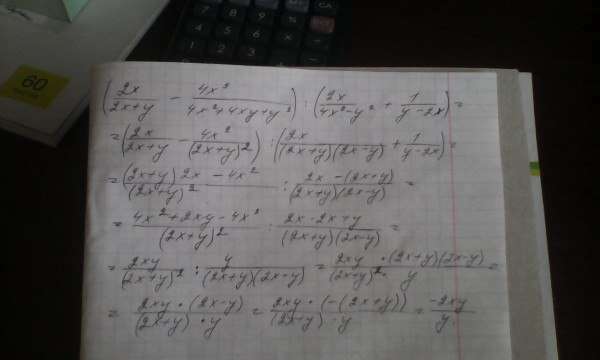 (2x/(2x+y) - 4x²/(4x²+4xy+y²)) : (2x/(4x²-y²) + 1/(y-2x)) =
= (2x/(2x+y) - 4x²/(2x+y)²) : (2x/((2x+y)(2x-y)) + 1/(y-2x)) =
= ((2x+y) 2x - 4x²)/(2x+y)² : (2x -(2x+y))/((2x+y)(2x-y)) =
= (4x²+2xy-4x²)/(2x+y)² : (2x-2x+y)/((2x+y)(2x-y)) =
= 2xy/(2x+y)² : y/((2x+y)(2x-y)) = 2xy/(2x+y)² · (2x+y)(2x-y)/y =
= 2xy·(2x-y)/((2x+y)·y) = 2xy·(-(2x+y))/((2x+y)·y) = -2xy/y
60
7 8 9
4 5 6
1 2 3